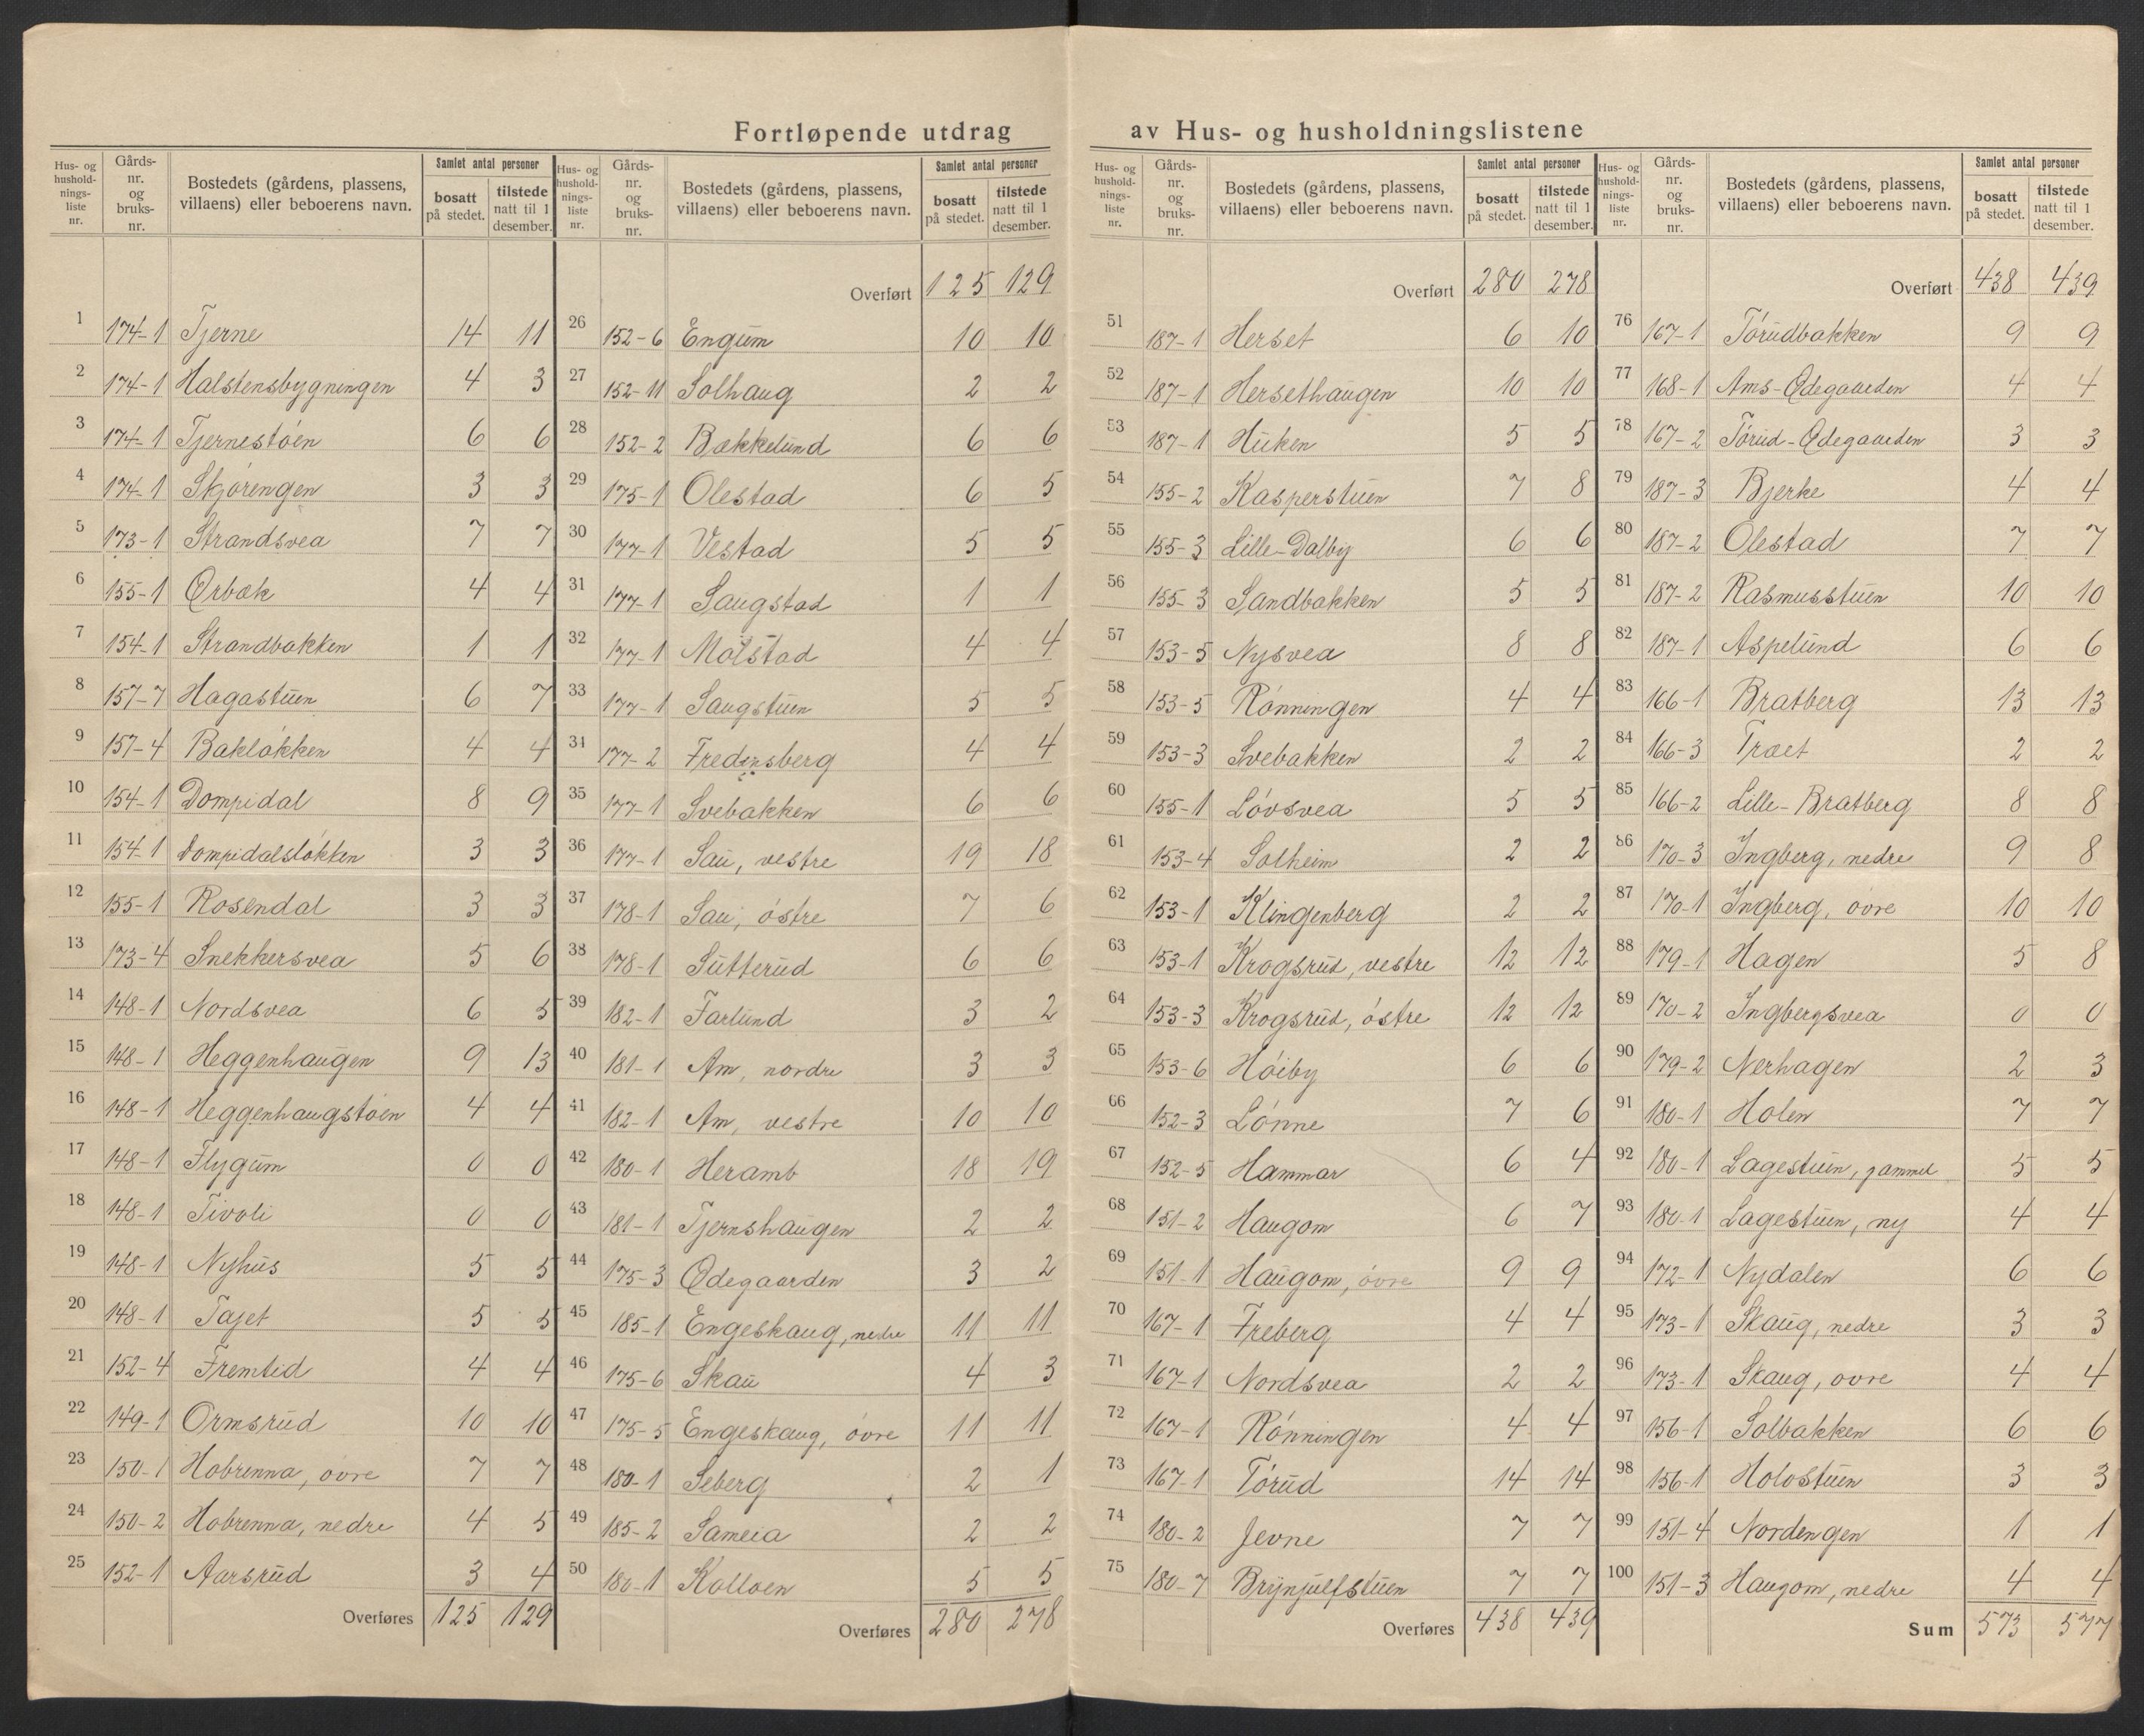 Fortløpende utdrag av Hus- og husholdningslistene
Hus- og hushold-nings-liste nr. | Gårds-nr. og bruks-nr. | Bostedets (gårdens, plassens, villaens) eller beboerens navn. | Samlet antal personer bosatt på stedet. | tilstede natt til 1 desember.
1 174-1 Tjerne 14 11
2 174-1 Halstensbygningen 4 3
3 174-1 Tjernestøen 6 6
4 174-1 Skjørengen 3 3
5 173-1 Strandsvea 7 7
6 155-1 Ørbæk 4 4
7 154-1 Strandbakken 1 1
8 157-7 Hagastuen 6 7
9 157-4 Bakløkken 4 4
10 154-1 Dompidal 8 9
11 154-1 Dompidalsløkken 3 3
12 155-1 Rosendal 3 3
13 173-4 Snekkersvea 5 6
14 148-1 Nordsvea 6 5
15 148-1 Heggenhaugen 9 13
16 148-1 Heggenhaugstøen 4 4
17 148-1 Flygum 0 0
18 148-1 Tivoli 0 0
19 148-1 Nyhus 5 5
20 148-1 Tajet 5 5
21 152-4 Fremtid 4 4
22 149-1 Ormsrud 10 10
23 150-1 Hobrenna, øvre 7 7
24 150-2 Hobrenna, nedre 4 5
25 152-1 Aarsrud 3 4
Overføres 125 129
Hus- og hushold-nings-liste nr. | Gårds-nr. og bruks-nr. | Bostedets (gårdens, plassens, villaens) eller beboerens navn. | Samlet antal personer bosatt på stedet. | tilstede natt til 1 desember.
Overført 125 129
26 152-6 Engum 10 10
27 152-11 Solhaug 2 2
28 152-2 Bækkelund 6 6
29 175-1 Olestad 6 5
30 177-1 Vestad 5 5
31 177-1 Saugstad 1 1
32 177-1 Molstad 4 4
33 177-1 Saugstuen 5 5
34 177-2 Fredensberg 4 4
35 177-1 Svebakken 6 6
36 177-1 Sau, vestre 19 18
37 178-1 Sau, østre 7 6
38 178-1 Sutterud 6 6
39 182-1 Farlund 3 2
40 181-1 Am, nordre 3 3
41 182-1 Am, vestre 10 10
42 180-1 Heramb 18 19
43 181-1 Tjernshaugen 2 2
44 175-3 Ødegaarden 3 2
45 185-1 Engeskaug, nedre 11 11
46 175-6 Skau 4 3
47 175-5 Engeskaug, øvre 11 11
48 180-1 Seberg 2 1
49 185-2 Sameia 2 2
50 180-1 Kolloen 5 5
Overføres 280 278
Hus- og hushold-nings-liste nr. | Gårds-nr. og bruks-nr. | Bostedets (gårdens, plassens, villaens) eller beboerens navn. | Samlet antal personer bosatt på stedet. | tilstede natt til 1 desember.
Overført 280 278
51 187-1 Herset 6 10
52 187-1 Hersethaugen 10 10
53 187-1 Huken 5 5
54 155-2 Kasperstuen 7 8
55 155-3 Lille-Dalby 6 6
56 155-3 Sandbakken 5 5
57 153-5 Nysvea 8 8
58 153-5 Rønningen 4 4
59 153-3 Svebakken 2 2
60 155-1 Løvsvea 5 5
61 153-4 Solheim 2 2
62 153-1 Klingenberg 2 2
63 153-1 Krogsrud, vestre 12 12
64 153-3 Krogsrud, østre 12 12
65 153-6 Høiby 6 6
66 152-3 Lønne 7 6
67 152-5 Hammar 6 4
68 151-2 Haugom 6 7
69 151-1 Haugom, øvre 9 9
70 167-1 Freberg 4 4
71 167-1 Nordsvea 2 2
72 167-1 Rønningen 4 4
73 167-1 Tørud 14 14
74 180-2 Jevne 7 7
75 180-7 Brynjulfstuen 7 7
Overføres 438 439
Hus- og hushold-nings-liste nr. | Gårds-nr. og bruks-nr. | Bostedets (gårdens, plassens, villaens) eller beboerens navn. | Samlet antal personer bosatt på stedet. | tilstede natt til 1 desember.
Overført 438 439
76 167-1 Tørudbakken 9 9
77 168-1 Ams-Ødegaarden 4 4
78 167-2 Tørud-Ødegaarden 3 3
79 187-3 Bjerke 4 4
80 187-2 Olestad 7 7
81 187-2 Rasmusstuen 10 10
82 187-1 Aspelund 6 6
83 166-1 Bratberg 13 13
84 166-3 Træet 2 2
85 166-2 Lille-Bratberg 8 8
86 170-3 Ingberg, nedre 9 8
87 170-1 Ingberg, øvre 10 10
88 179-1 Hagen 5 8
89 170-2 Ingbergsvea 0 0
90 179-2 Nerhagen 2 3
91 180-1 Holen 7 7
92 180-1 Lagestuen, gammel 5 5
93 180-1 Lagestuen, ny 4 4
94 172-1 Nydalen 6 6
95 173-1 Skaug, nedre 3 3
96 173-1 Skaug, øvre 4 4
97 156-1 Solbakken 6 6
98 156-1 Holostuen 3 3
99 151-4 Nordengen 1 1
100 151-3 Haugom, nedre 4 4
Sum 573 577